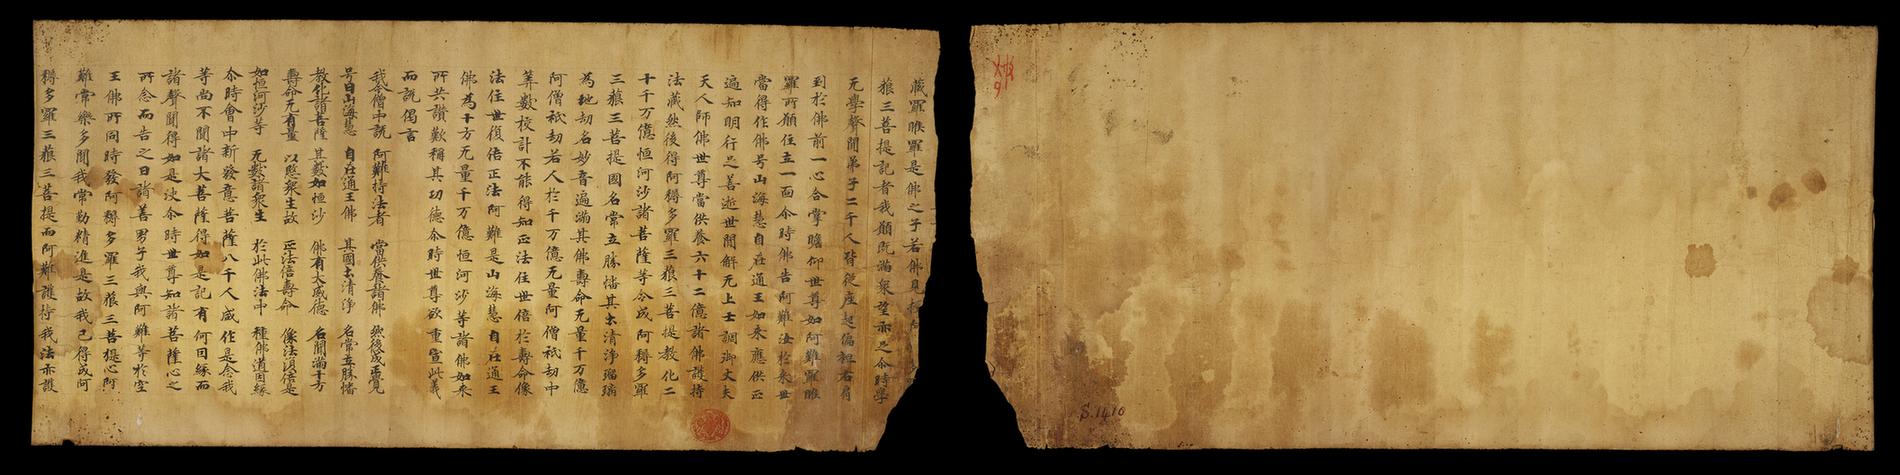 藏羅睺羅是佛之子若佛見授阿
藐三菩提記者我願既滿衆望亦足尒時學
无學聲聞弟子二千人皆從座起偏袒右肩
到於佛前一心合掌瞻仰世尊如阿難羅睺
羅所願住立一面尒時佛告阿難汝於來世
當得作佛号山海慧自在通王如來應供正
遍知明行足善逝世間解无上士調御丈夫
天人師佛世尊當供養六十二億諸佛護持
法藏然後得阿耨多羅三藐三菩提教化二
十千万億恒河沙諸菩薩等令成阿耨多羅
三藐三菩提國名常立勝幡其土清淨瑠璃
為地劫名妙音遍滿其佛壽命无量千万億
阿僧祇劫若人於千万億无量阿僧祇劫中
筭數校計不能得知正法住世倍於壽命像
法住世復倍正法阿難是山海慧自在通王
佛為十方无量千万億恒河沙等諸佛如來
所共讚歎稱其功德尒時世尊欲重宣此義
而說偈言
我今僧中說 阿難持法者 當供養諸佛 然後成正覺
号曰山海慧 自在通王佛 其國土清淨 名常立勝幡
教化諸菩薩 其數如恒沙 佛有大威德 名聞滿十方
壽命无有量 以愍衆生故 正法倍壽命 像法復倍是
如恒河沙等 无數諸衆生 於此佛法中 種佛道因緣
尒時會中新發意菩薩八千人咸作是念我
等尚不聞諸大菩薩得如是記有何因緣而
諸聲聞得如是決尒時世尊知諸菩薩心之
所念而告之曰諸善男子我與阿難等於空
王佛所同時發阿耨多羅三藐三菩提心阿
難常樂多聞我常勤精進是故我已得成阿
耨多羅三藐三菩提而阿難護持我法亦護
S.1410